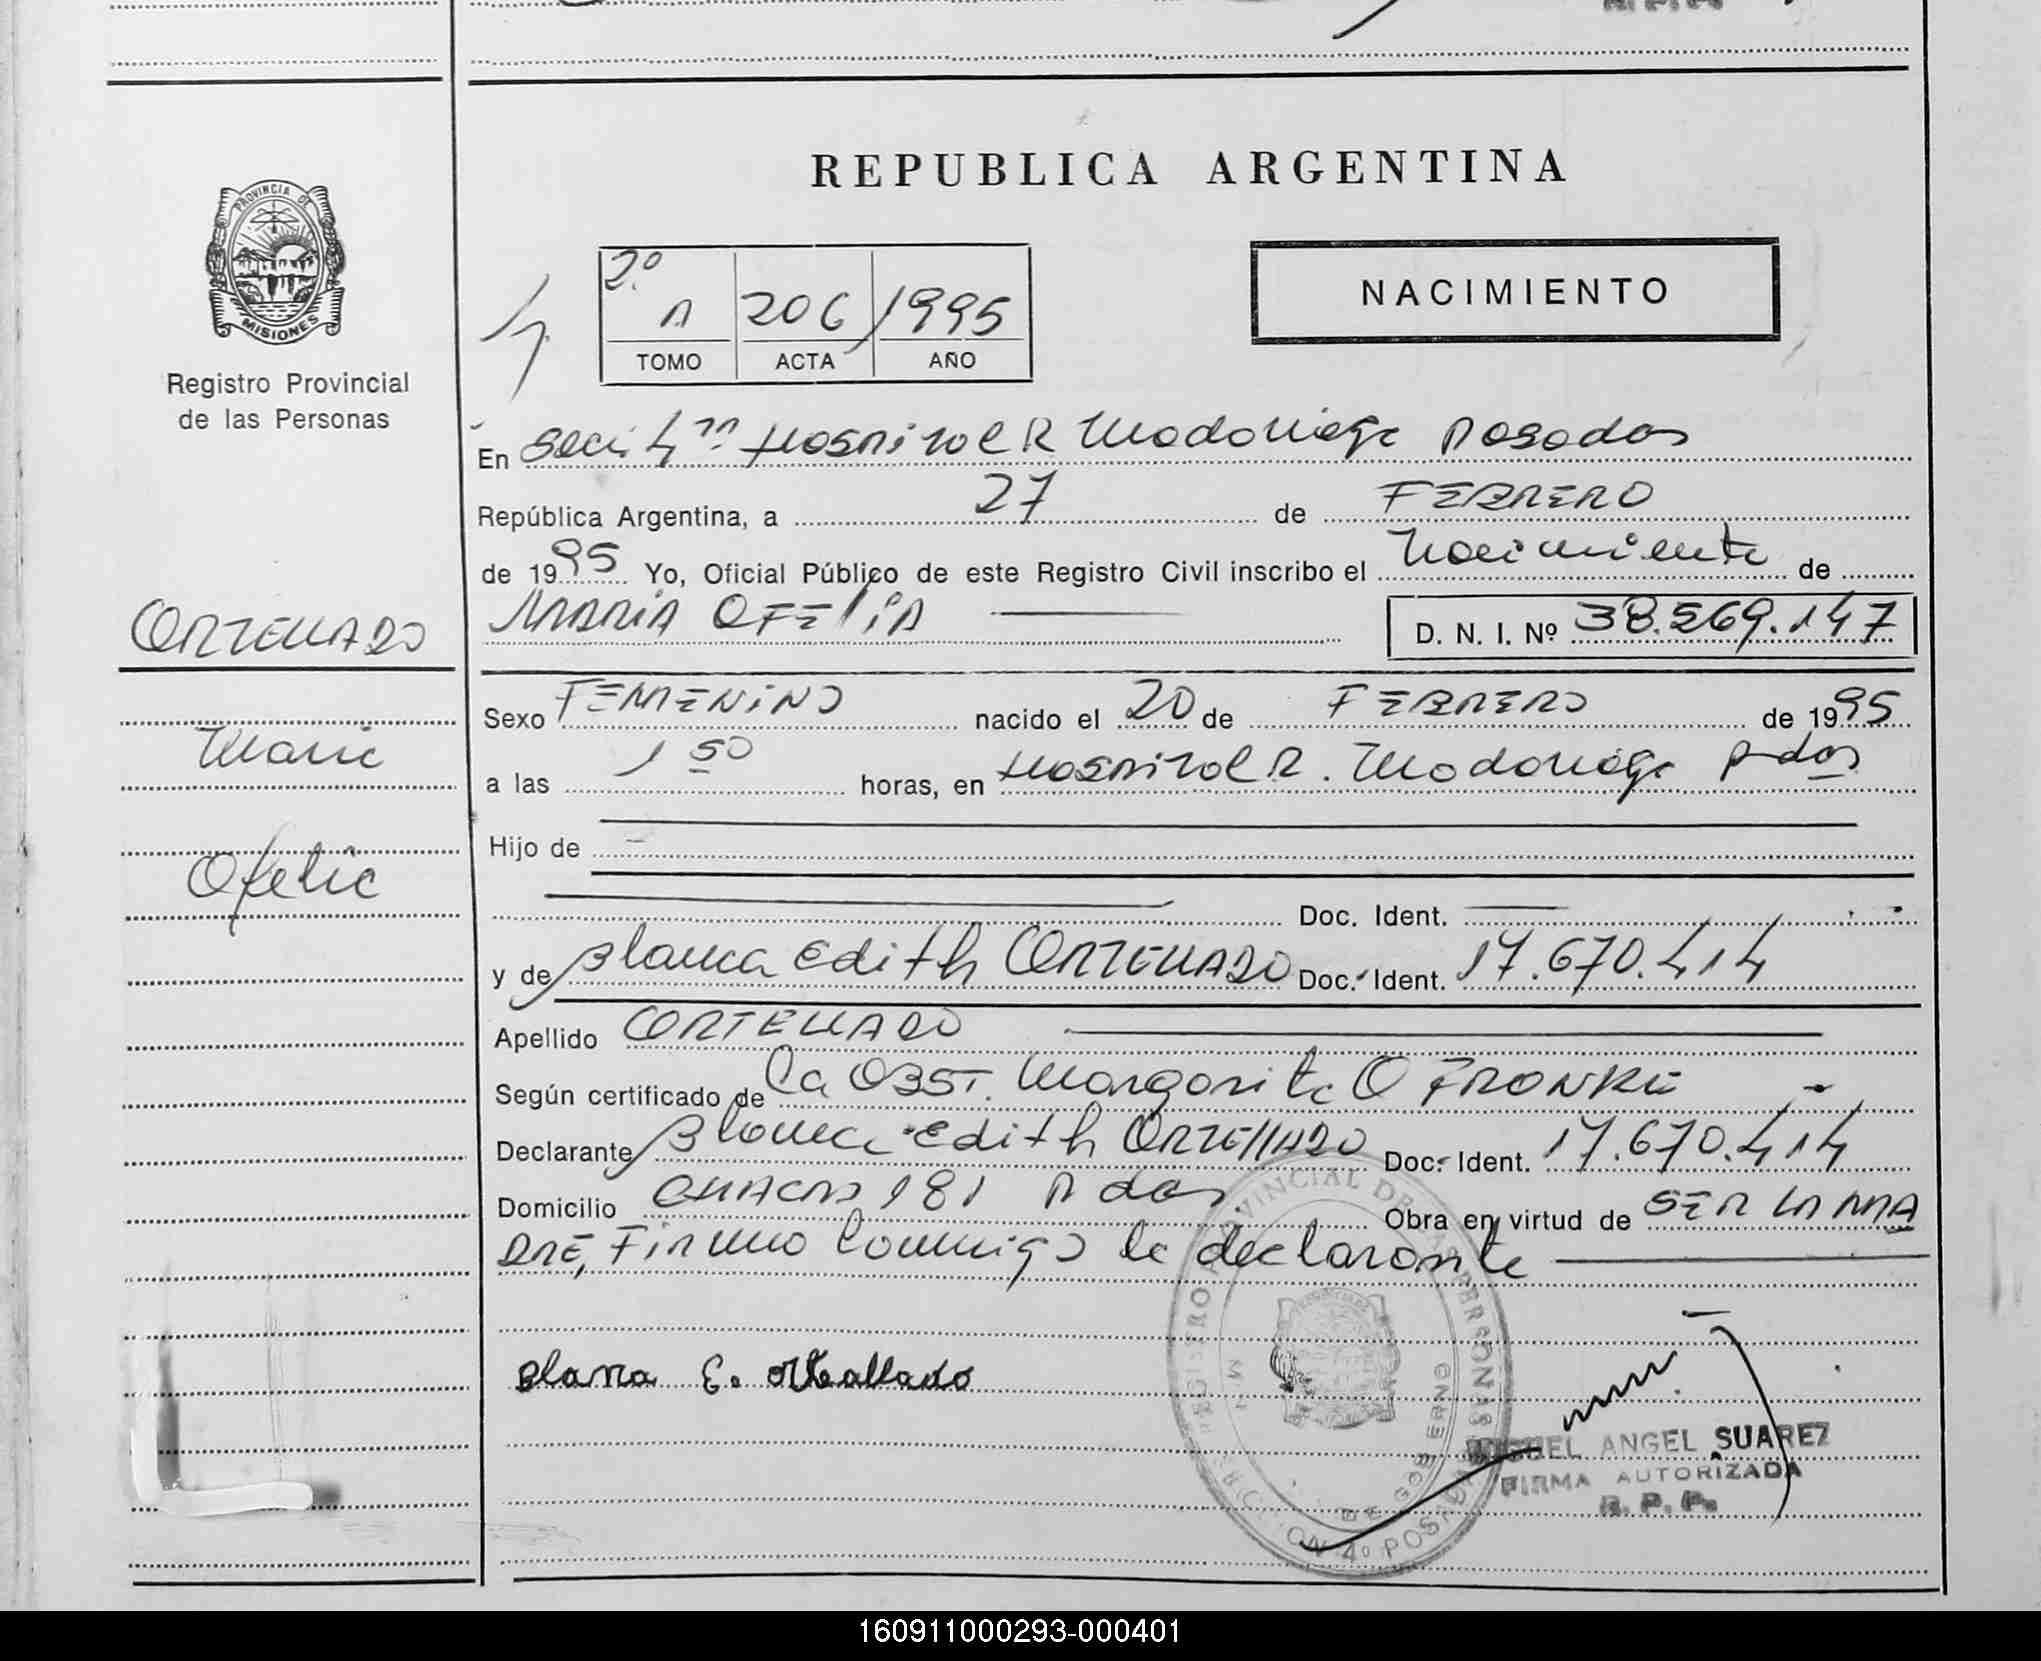 REPUBLICA ARGENTINA
PROVINCIA DE
MISIONES
Registro Provincial
de las Personas
2º
A 206 1995
TOMO ACTA AÑO
NACIMIENTO
En Secc 4ta Hospital R Madariaga Posadas
República Argentina, a 27 de FEBRERO
de 1995 Yo, Oficial Público de este Registro Civil inscribo el Nacimiento de
MARIA OFELIA
D. N. I. Nº 38.569.147
ORTELLADO
Maria
Ofelia
Sexo FEMENINO nacido el 20 de FEBRERO de 1995
a las 1 50 horas, en Hospital R. Madariaga Pdas
Hijo de
Doc. Ident.
y de Blanca Edith ORTELLADO Doc. Ident. 17.670.414
Apellido ORTELLADO
Según certificado de la OBST. Margarita O FRONKE
Declarante Blanca Edith ORTELLADO Doc. Ident. 17.670.414
Domicilio 181 Pdas Obra en virtud de SER LA MA
DRE, Firmo conmigo la declarante
Blanca E. Ortellado
MIGUEL ANGEL SUAREZ
FIRMA AUTORIZADA
R. P. P.
160911000293-000401